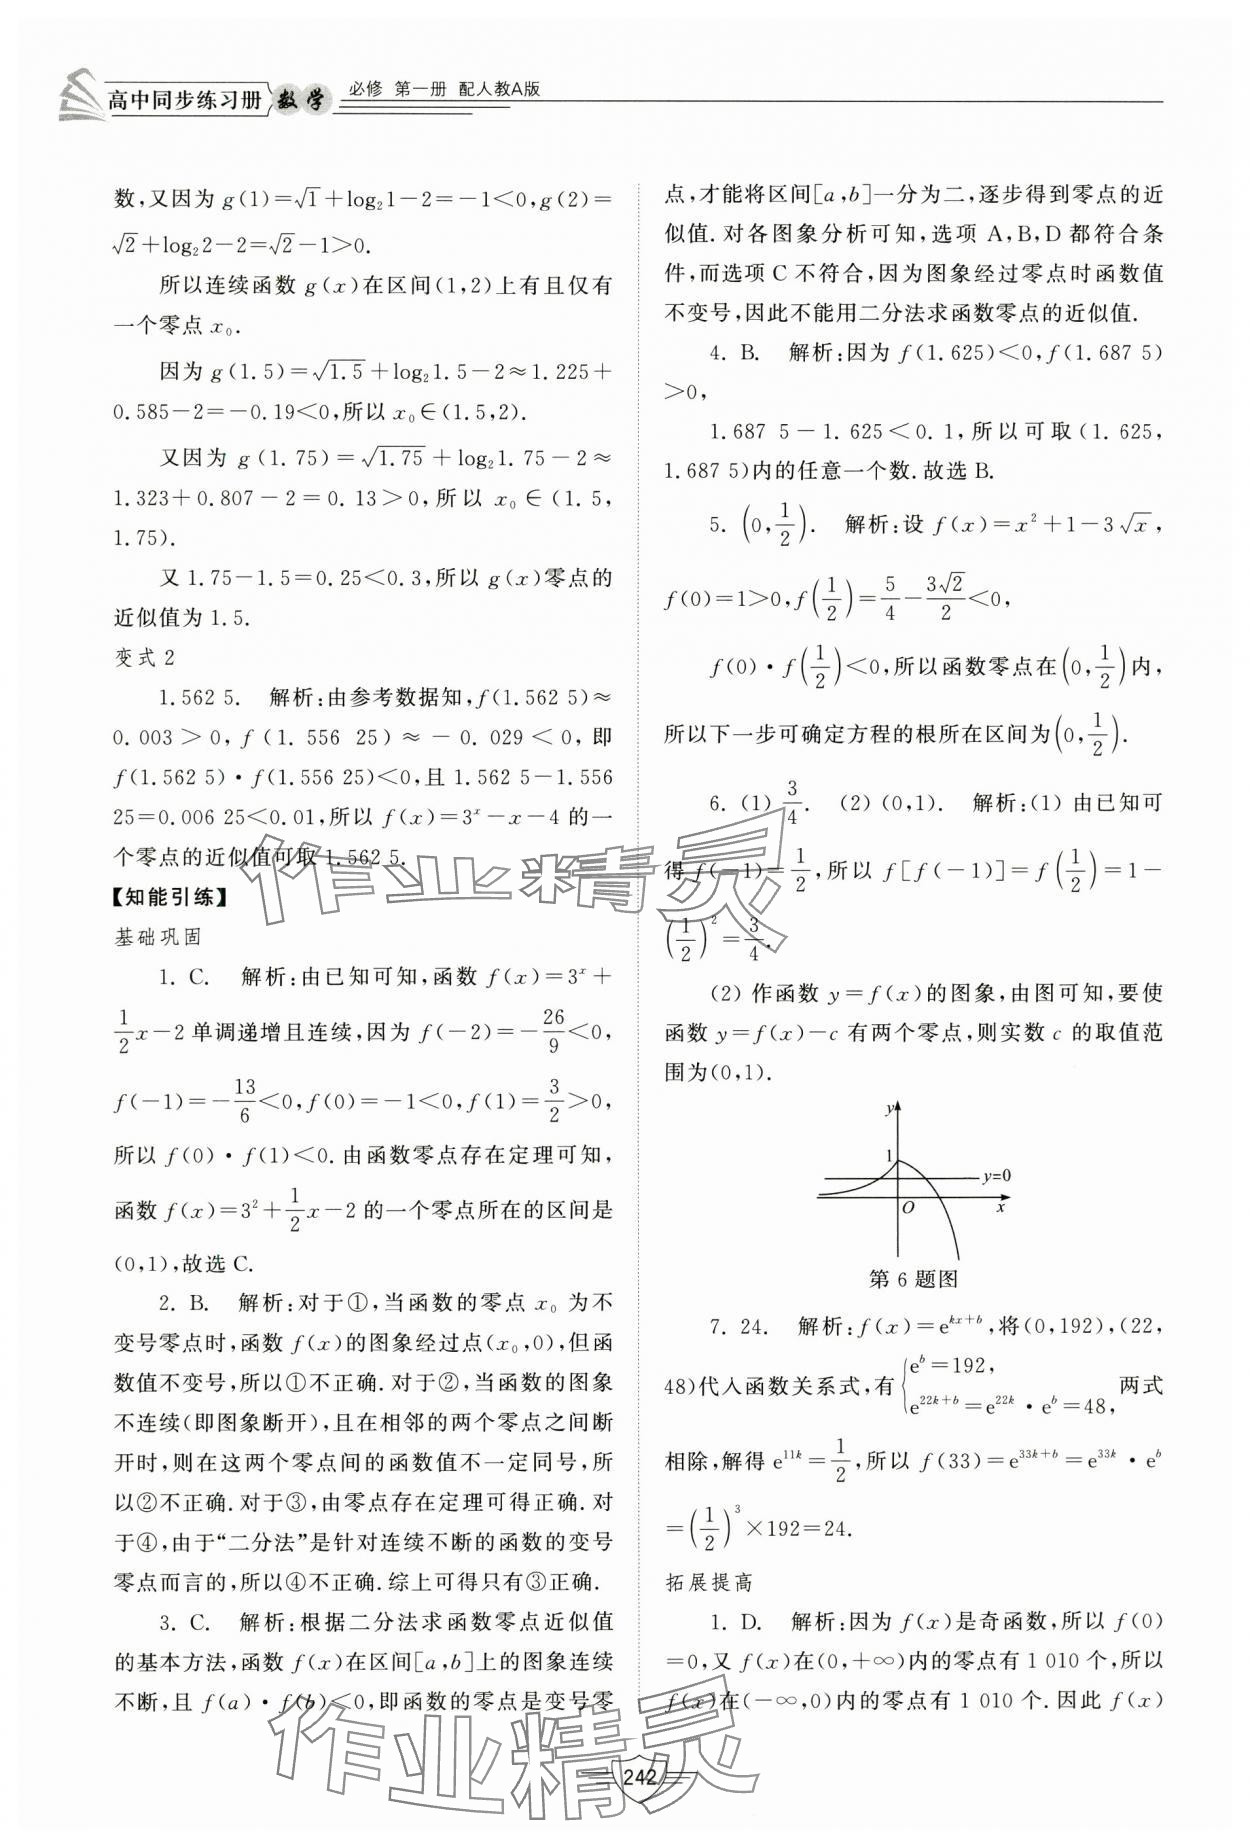 高中同步练习册 数学 必修 第一册 配人教A版
数,又因为 g(1)=√1+log₂1-2=-1<0,g(2)=
√2+log₂2-2=√2-1>0.
所以连续函数 g(x)在区间(1,2)上有且仅有
一个零点 x₀.
因为 g(1.5)=√1.5+log₂1.5-2≈1.225+
0.585-2=-0.19<0,所以 x₀∈(1.5,2).
又因为 g(1.75)=√1.75+log₂1.75-2≈
1.323+0.807-2=0.13>0,所以 x₀∈(1.5,
1.75).
又 1.75-1.5=0.25<0.3,所以 g(x)零点的
近似值为 1.5.
变式 2
1.562 5. 解析:由参考数据知,f(1.562 5)≈
0.003>0,f(1.556 25)≈-0.029<0,即
f(1.562 5)·f(1.556 25)<0,且 1.562 5-1.556
25=0.006 25<0.01,所以 f(x)=3ˣ-x-4 的一
个零点的近似值可取 1.562 5.
【知能引练】
基础巩固
1. C. 解析:由已知可知,函数 f(x)=3ˣ+
1/2 x-2 单调递增且连续,因为 f(-2)=-26/9<0,
f(-1)=-13/6<0,f(0)=-1<0,f(1)=3/2>0,
所以 f(0)·f(1)<0.由函数零点存在定理可知,
函数 f(x)=3²+1/2 x-2 的一个零点所在的区间是
(0,1),故选 C.
2. B. 解析:对于①,当函数的零点 x₀ 为不
变号零点时,函数 f(x)的图象经过点(x₀,0),但函
数值不变号,所以①不正确.对于②,当函数的图象
不连续(即图象断开),且在相邻的两个零点之间断
开时,则在这两个零点间的函数值不一定同号,所
以②不正确.对于③,由零点存在定理可得正确.对
于④,由于“二分法”是针对连续不断的函数的变号
零点而言的,所以④不正确.综上可得只有③正确.
3. C. 解析:根据二分法求函数零点近似值
的基本方法,函数 f(x)在区间[a,b]上的图象连续
不断,且 f(a)·f(b)<0,即函数的零点是变号零
点,才能将区间[a,b]一分为二,逐步得到零点的近
似值.对各图象分析可知,选项 A,B,D 都符合条
件,而选项 C 不符合,因为图象经过零点时函数值
不变号,因此不能用二分法求函数零点的近似值.
4. B. 解析:因为 f(1.625)<0,f(1.687 5)
>0,
1.687 5-1.625<0.1,所以可取(1.625,
1.687 5)内的任意一个数.故选 B.
5. (0,1/2). 解析:设 f(x)=x²+1-3√x,
f(0)=1>0,f(1/2)=5/4-3√2/2<0,
f(0)·f(1/2)<0,所以函数零点在(0,1/2)内,
所以下一步可确定方程的根所在区间为(0,1/2).
6. (1) 3/4. (2) (0,1). 解析:(1) 由已知可
得 f(-1)=1/2,所以 f[f(-1)]=f(1/2)=1-
(1/2)²=3/4.
(2) 作函数 y=f(x)的图象,由图可知,要使
函数 y=f(x)-c 有两个零点,则实数 c 的取值范
围为(0,1).
y
1
y=0
O
x
第 6 题图
7. 24. 解析:f(x)=e^(kx+b),将(0,192),(22,
48)代入函数关系式,有{e^b=192, e^(22k+b)=e^(22k)·e^b=48, 两式
相除,解得 e^(11k)=1/2,所以 f(33)=e^(33k+b)=e^(33k)·e^b
=(1/2)³×192=24.
拓展提高
1. D. 解析:因为 f(x)是奇函数,所以 f(0)
=0,又 f(x)在(0,+∞)内的零点有 1 010 个,所以
f(x)在(-∞,0)内的零点有 1 010 个.因此 f(x)
作业精灵
作业精灵
242